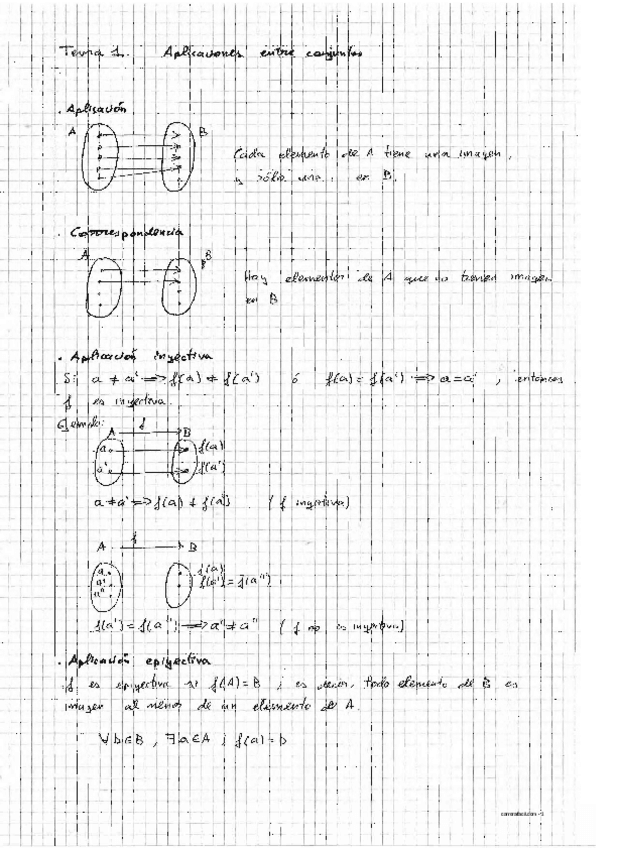 Tema 1. Aplicaciones entre conjuntos
. Aplicación
A B
Cada elemento de A tiene una imagen,
y sólo una, en B.
. Correspondencia
A B
Hay elementos de A que no tienen imagen
en B
. Aplicación inyectiva
Si a ≠ a' => f(a) ≠ f(a') ó f(a) = f(a') => a = a' , entonces
f es inyectiva.
Ejemplo:
A f B
a f(a)
a' f(a')
a ≠ a' => f(a) ≠ f(a') (f inyectiva)
A f B
a f(a)
a' f(a') = f(a'')
a''
f(a') = f(a'') => a' ≠ a'' (f no es inyectiva)
. Aplicación epiyectiva
f es epiyectiva si f(A) = B ; es decir, todo elemento de B es
imagen al menos de un elemento de A.
∀ b ∈ B , ∃ a ∈ A ; f(a) = b